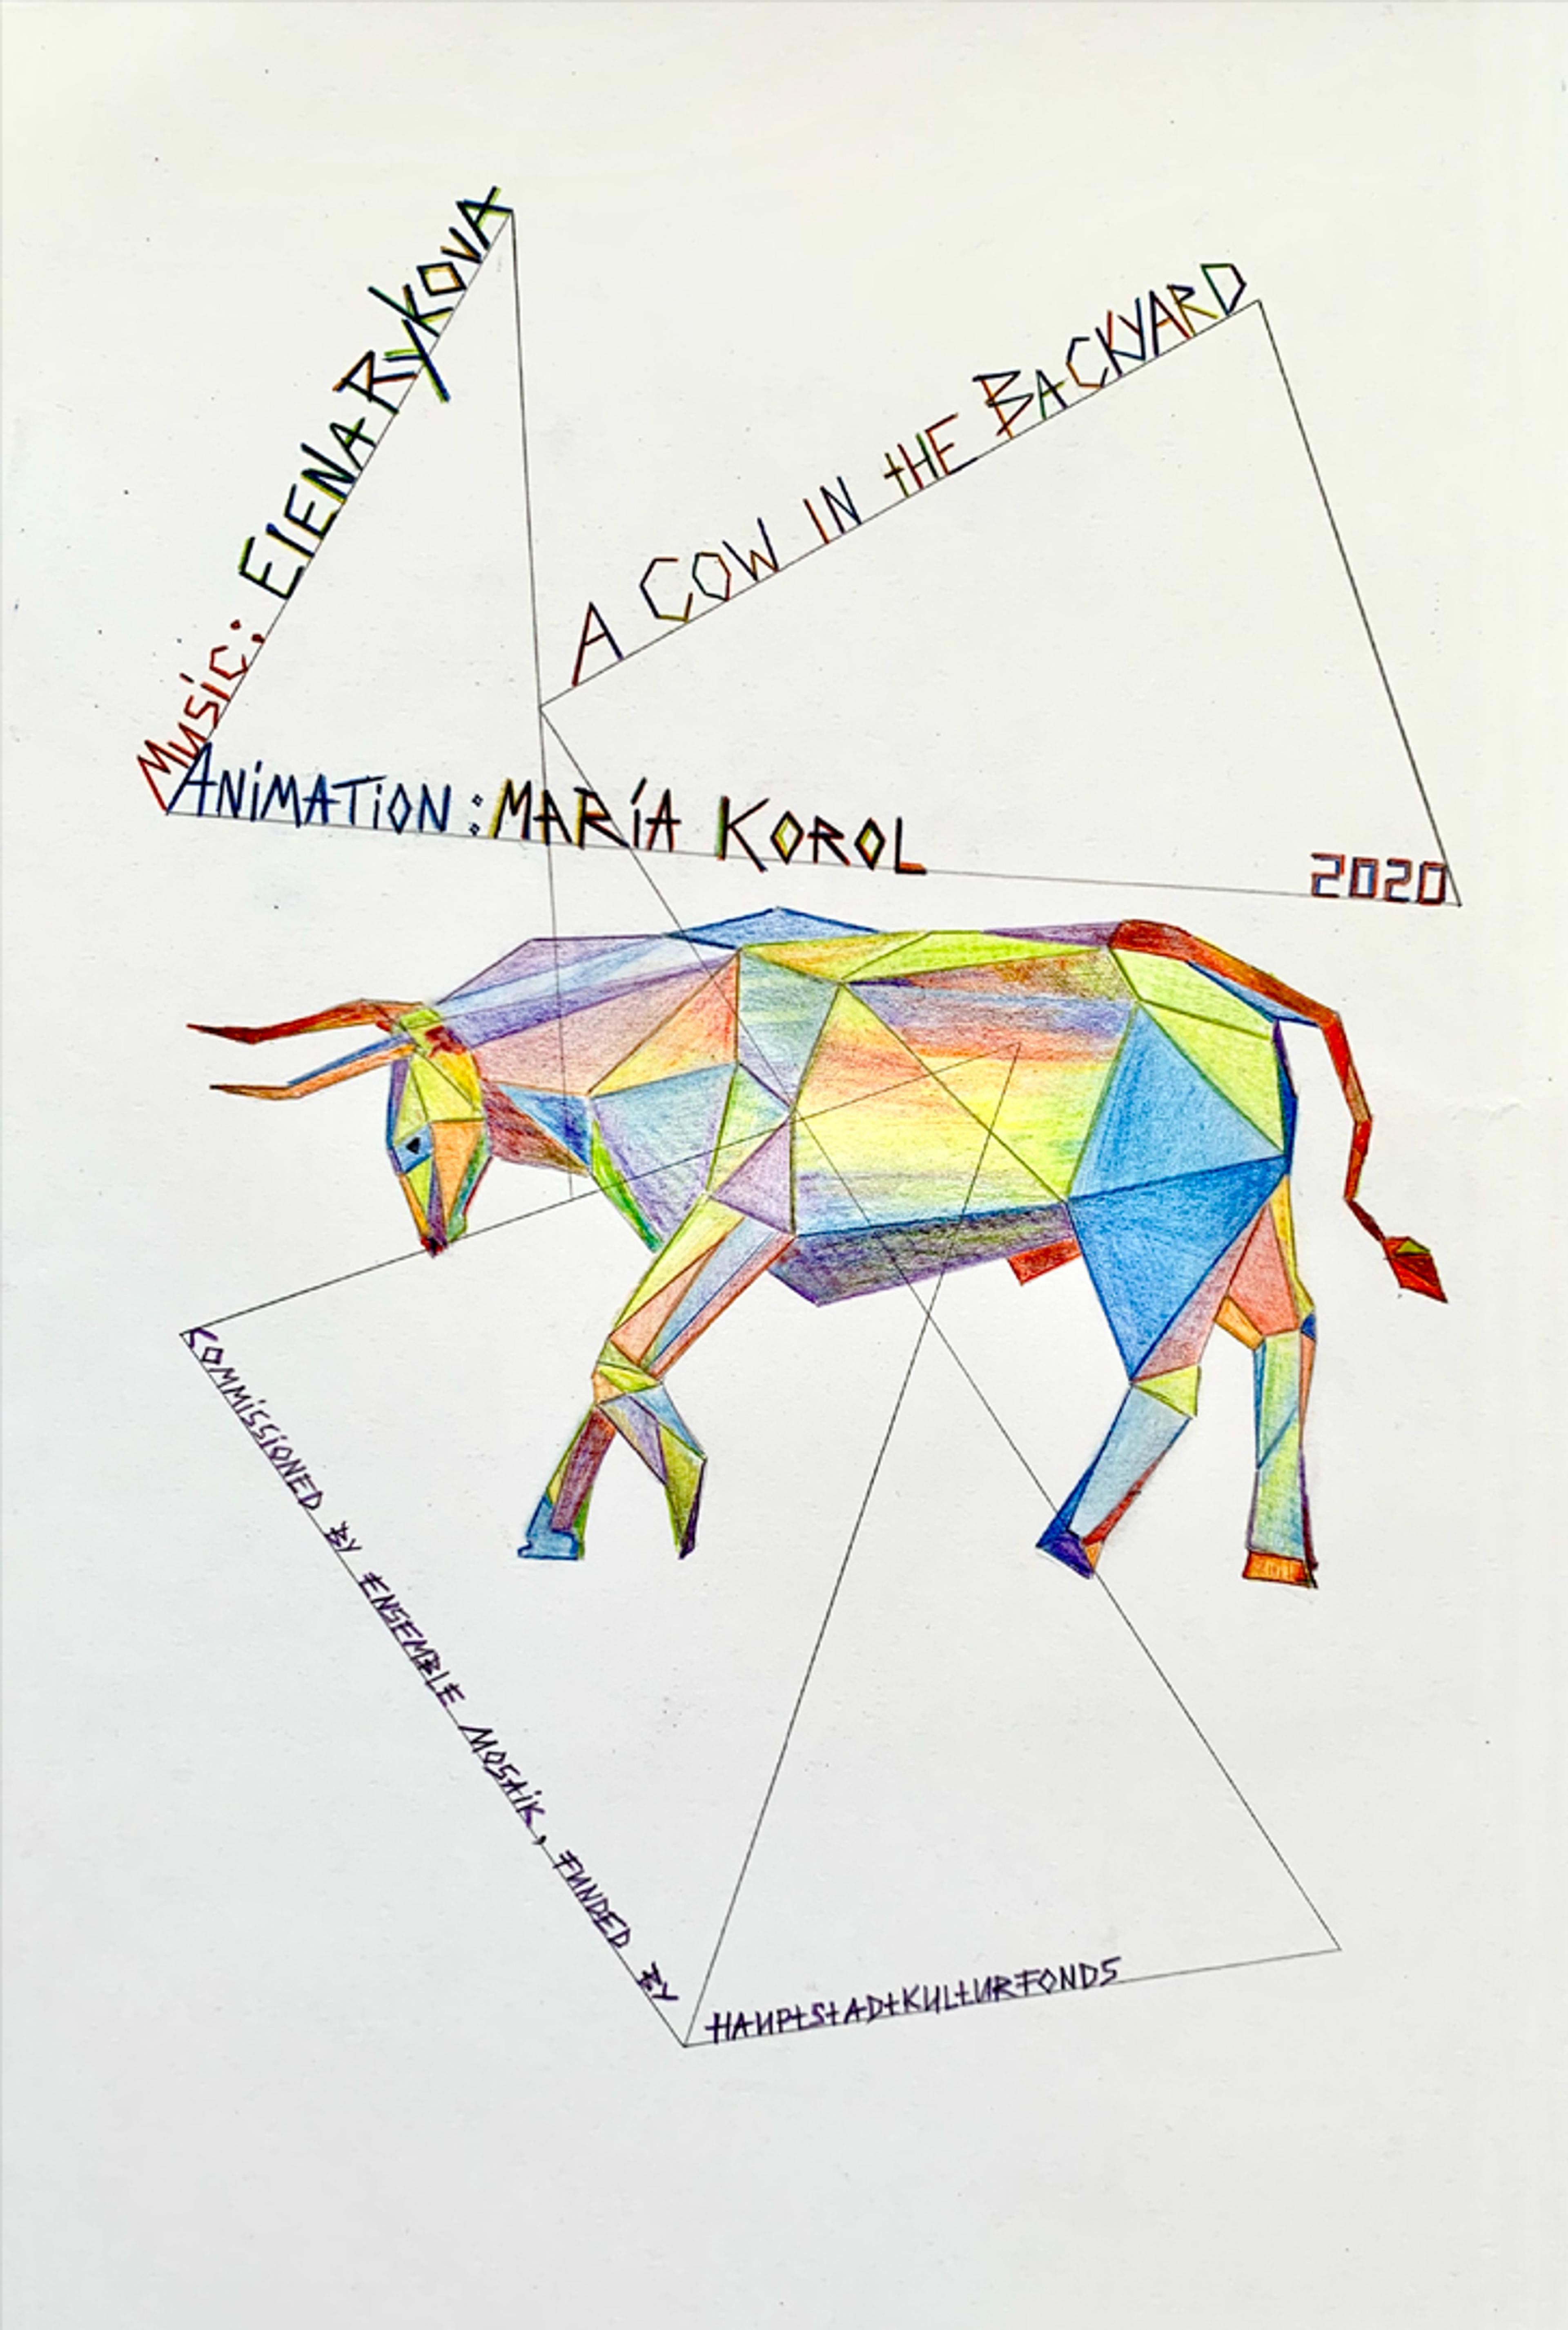 Music: ElENA RyKOVA
A COW IN tHE BACKYARD
ANiMATiON: MARíA KOROL
2020
COMMiSSiONED BY ENSEMBLE MOSAiK, FUNDED BY
HAUPtStADtKULtURFONDS